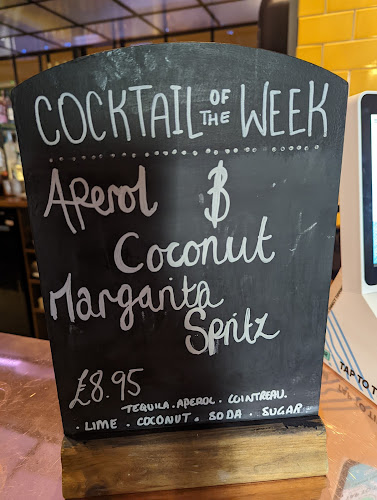 COCKTAIL OF THE WEEK
Aperol &
Coconut
Margarita
Spritz
£8.95
TEQUILA . APEROL . COINTREAU .
. LIME . COCONUT . SODA . SUGAR
TAP TO